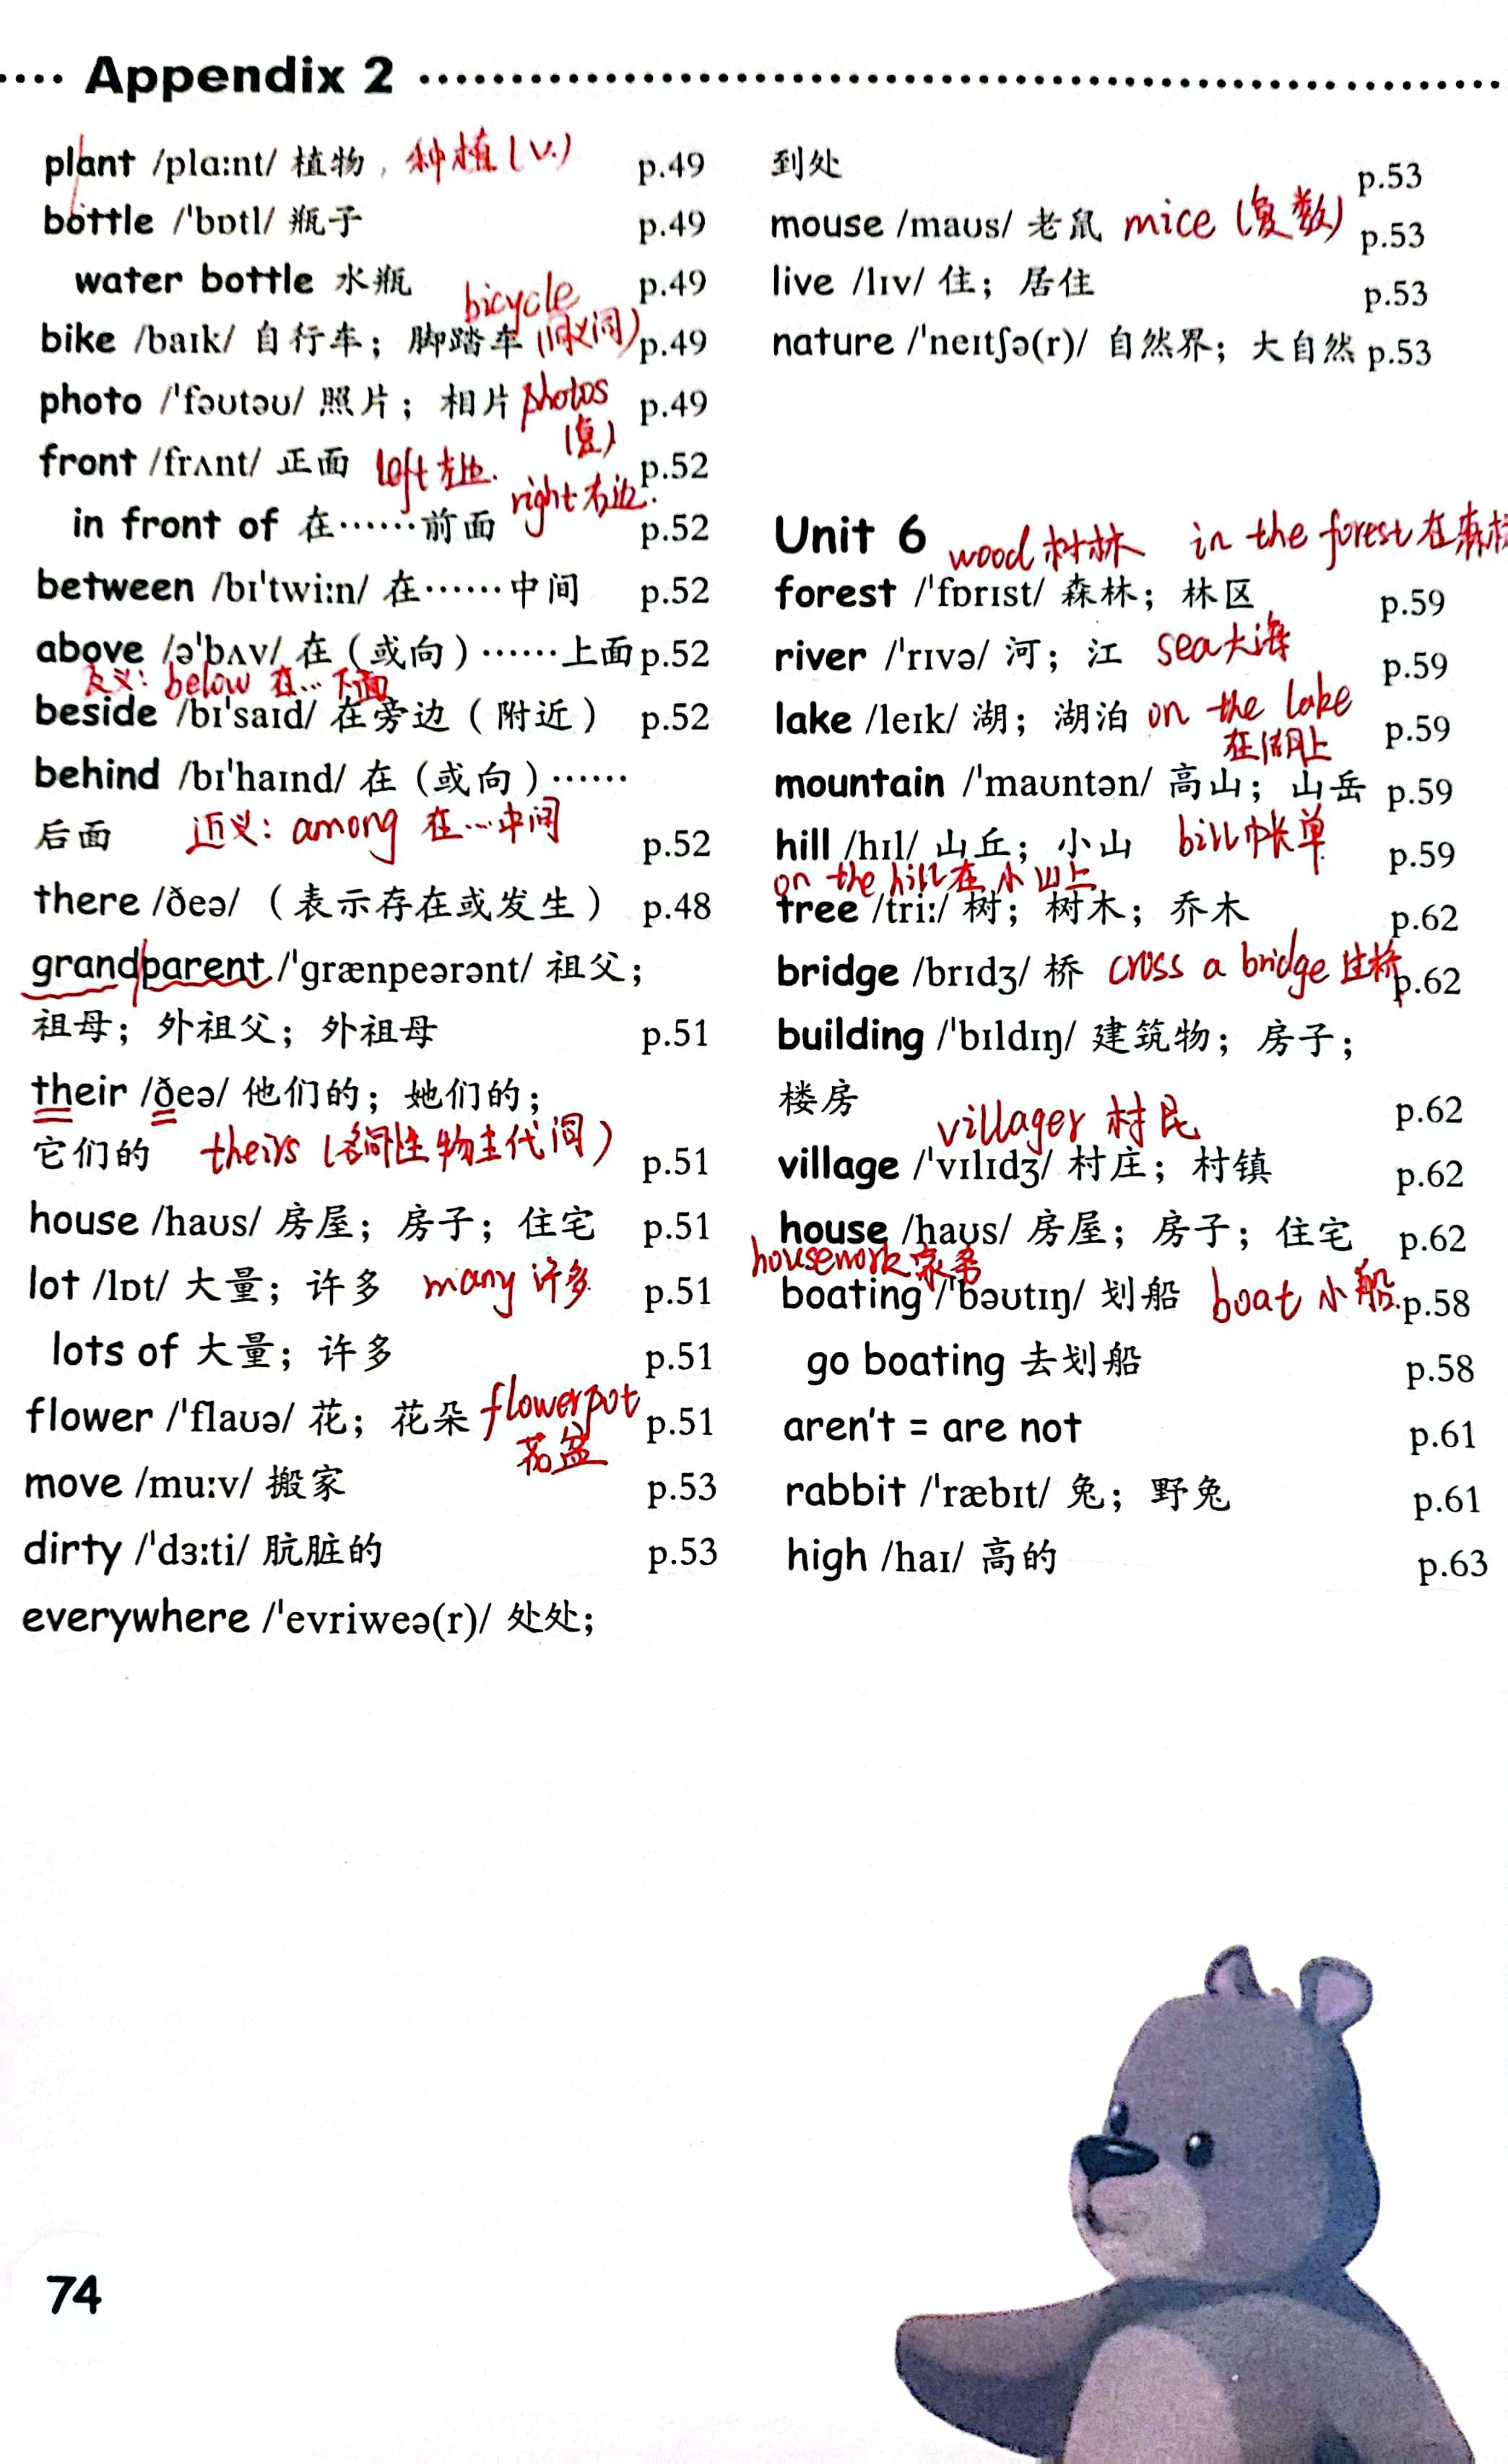 Appendix 2
plant /plɑːnt/ 植物，种植(v.) p.49
bottle /ˈbɒtl/ 瓶子 p.49
water bottle 水瓶 p.49
bicycle
bike /baɪk/ 自行车；脚踏车 (同义词) p.49
photo /ˈfəʊtəʊ/ 照片；相片 photos p.49
(复)
front /frʌnt/ 正面 left 左边. p.52
right 右边.
in front of 在……前面 p.52
between /bɪˈtwiːn/ 在……中间 p.52
above /əˈbʌv/ 在（或向）……上面 p.52
反义: below 在…下面
beside /bɪˈsaɪd/ 在旁边（附近） p.52
behind /bɪˈhaɪnd/ 在（或向）……
后面 近义: among 在…中间 p.52
there /ðeə/（表示存在或发生） p.48
grandparent /ˈɡrænpeərənt/ 祖父；
祖母；外祖父；外祖母 p.51
their /ðeə/ 他们的；她们的；
它们的 theirs (名词性物主代词) p.51
house /haʊs/ 房屋；房子；住宅 p.51
lot /lɒt/ 大量；许多 many 许多 p.51
lots of 大量；许多 p.51
flower /ˈflaʊə/ 花；花朵 flowerpot p.51
花盆
move /muːv/ 搬家 p.53
dirty /ˈdɜːti/ 肮脏的 p.53
everywhere /ˈevriweə(r)/ 处处；
到处 p.53
mouse /maʊs/ 老鼠 mice (复数) p.53
live /lɪv/ 住；居住 p.53
nature /ˈneɪtʃə(r)/ 自然界；大自然 p.53
Unit 6 wood 树林 in the forest 在森林
forest /ˈfɒrɪst/ 森林；林区 p.59
river /ˈrɪvə/ 河；江 sea 大海 p.59
lake /leɪk/ 湖；湖泊 on the lake p.59
在湖上
mountain /ˈmaʊntən/ 高山；山岳 p.59
hill /hɪl/ 山丘；小山 bill 帐单 p.59
on the hill 在小山上
tree /triː/ 树；树木；乔木 p.62
bridge /brɪdʒ/ 桥 cross a bridge 过桥 p.62
building /ˈbɪldɪŋ/ 建筑物；房子；
楼房 p.62
villager 村民
village /ˈvɪlɪdʒ/ 村庄；村镇 p.62
house /haʊs/ 房屋；房子；住宅 p.62
housework 家务
boating /ˈbəʊtɪŋ/ 划船 boat 小船 p.58
go boating 去划船 p.58
aren't = are not p.61
rabbit /ˈræbɪt/ 兔；野兔 p.61
high /haɪ/ 高的 p.63
74